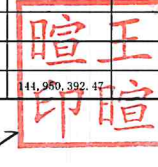 王暄
暄印
144,950,392.47